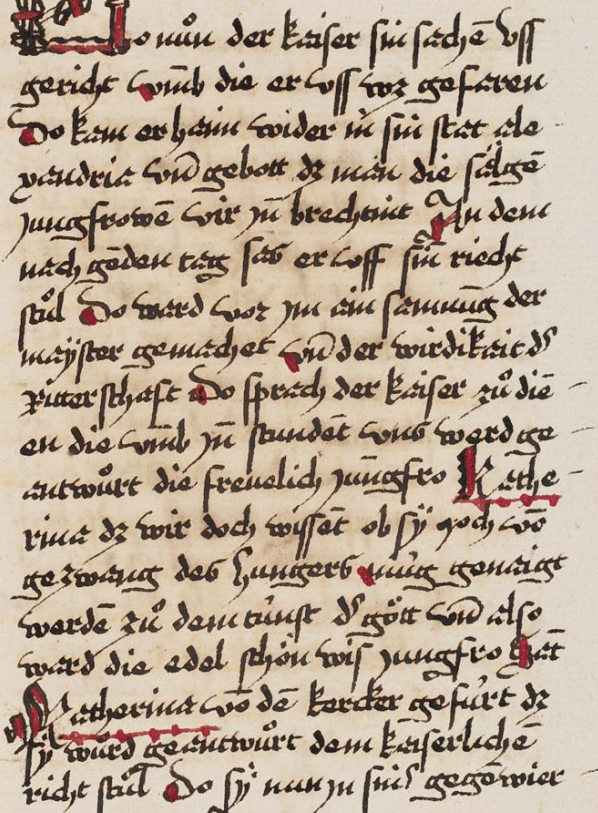 Do nuͦn der kaiser sin sachē vss
gericht vmb die er vss wz gefaren
Do kam er haim wider in sin stat ale
xandria vn̄ gebott dz man die sälgē
jungfrowē wir jn̄ brechtint An dem
nach gēden tag sas er vff sin̄ richt
stuͦl Do ward vor jm ain samnūg der
maÿster gemachet vn̄ der wirdikait ds̄
Ritterschafft Do sprach der kaiser zuͦ diē
en die vmb jn̄ stundēt vns werd ge
antwuͦrt die freuelich jungfro Kathe
rina dz wir doch wissēt ob sÿ noch vō
gezwang des hungers mug genaigt
werdē zuͦ dem tunst ds̄ gött vn̄ also
ward die edel schön wis jungfro kāt
Katherina vō dē kercker gefürt dz
sÿ wuͦrd geantwuͦrt dem kaiserlichē
richt stuͦl Do sÿ nun jn sins̄ gegē wier